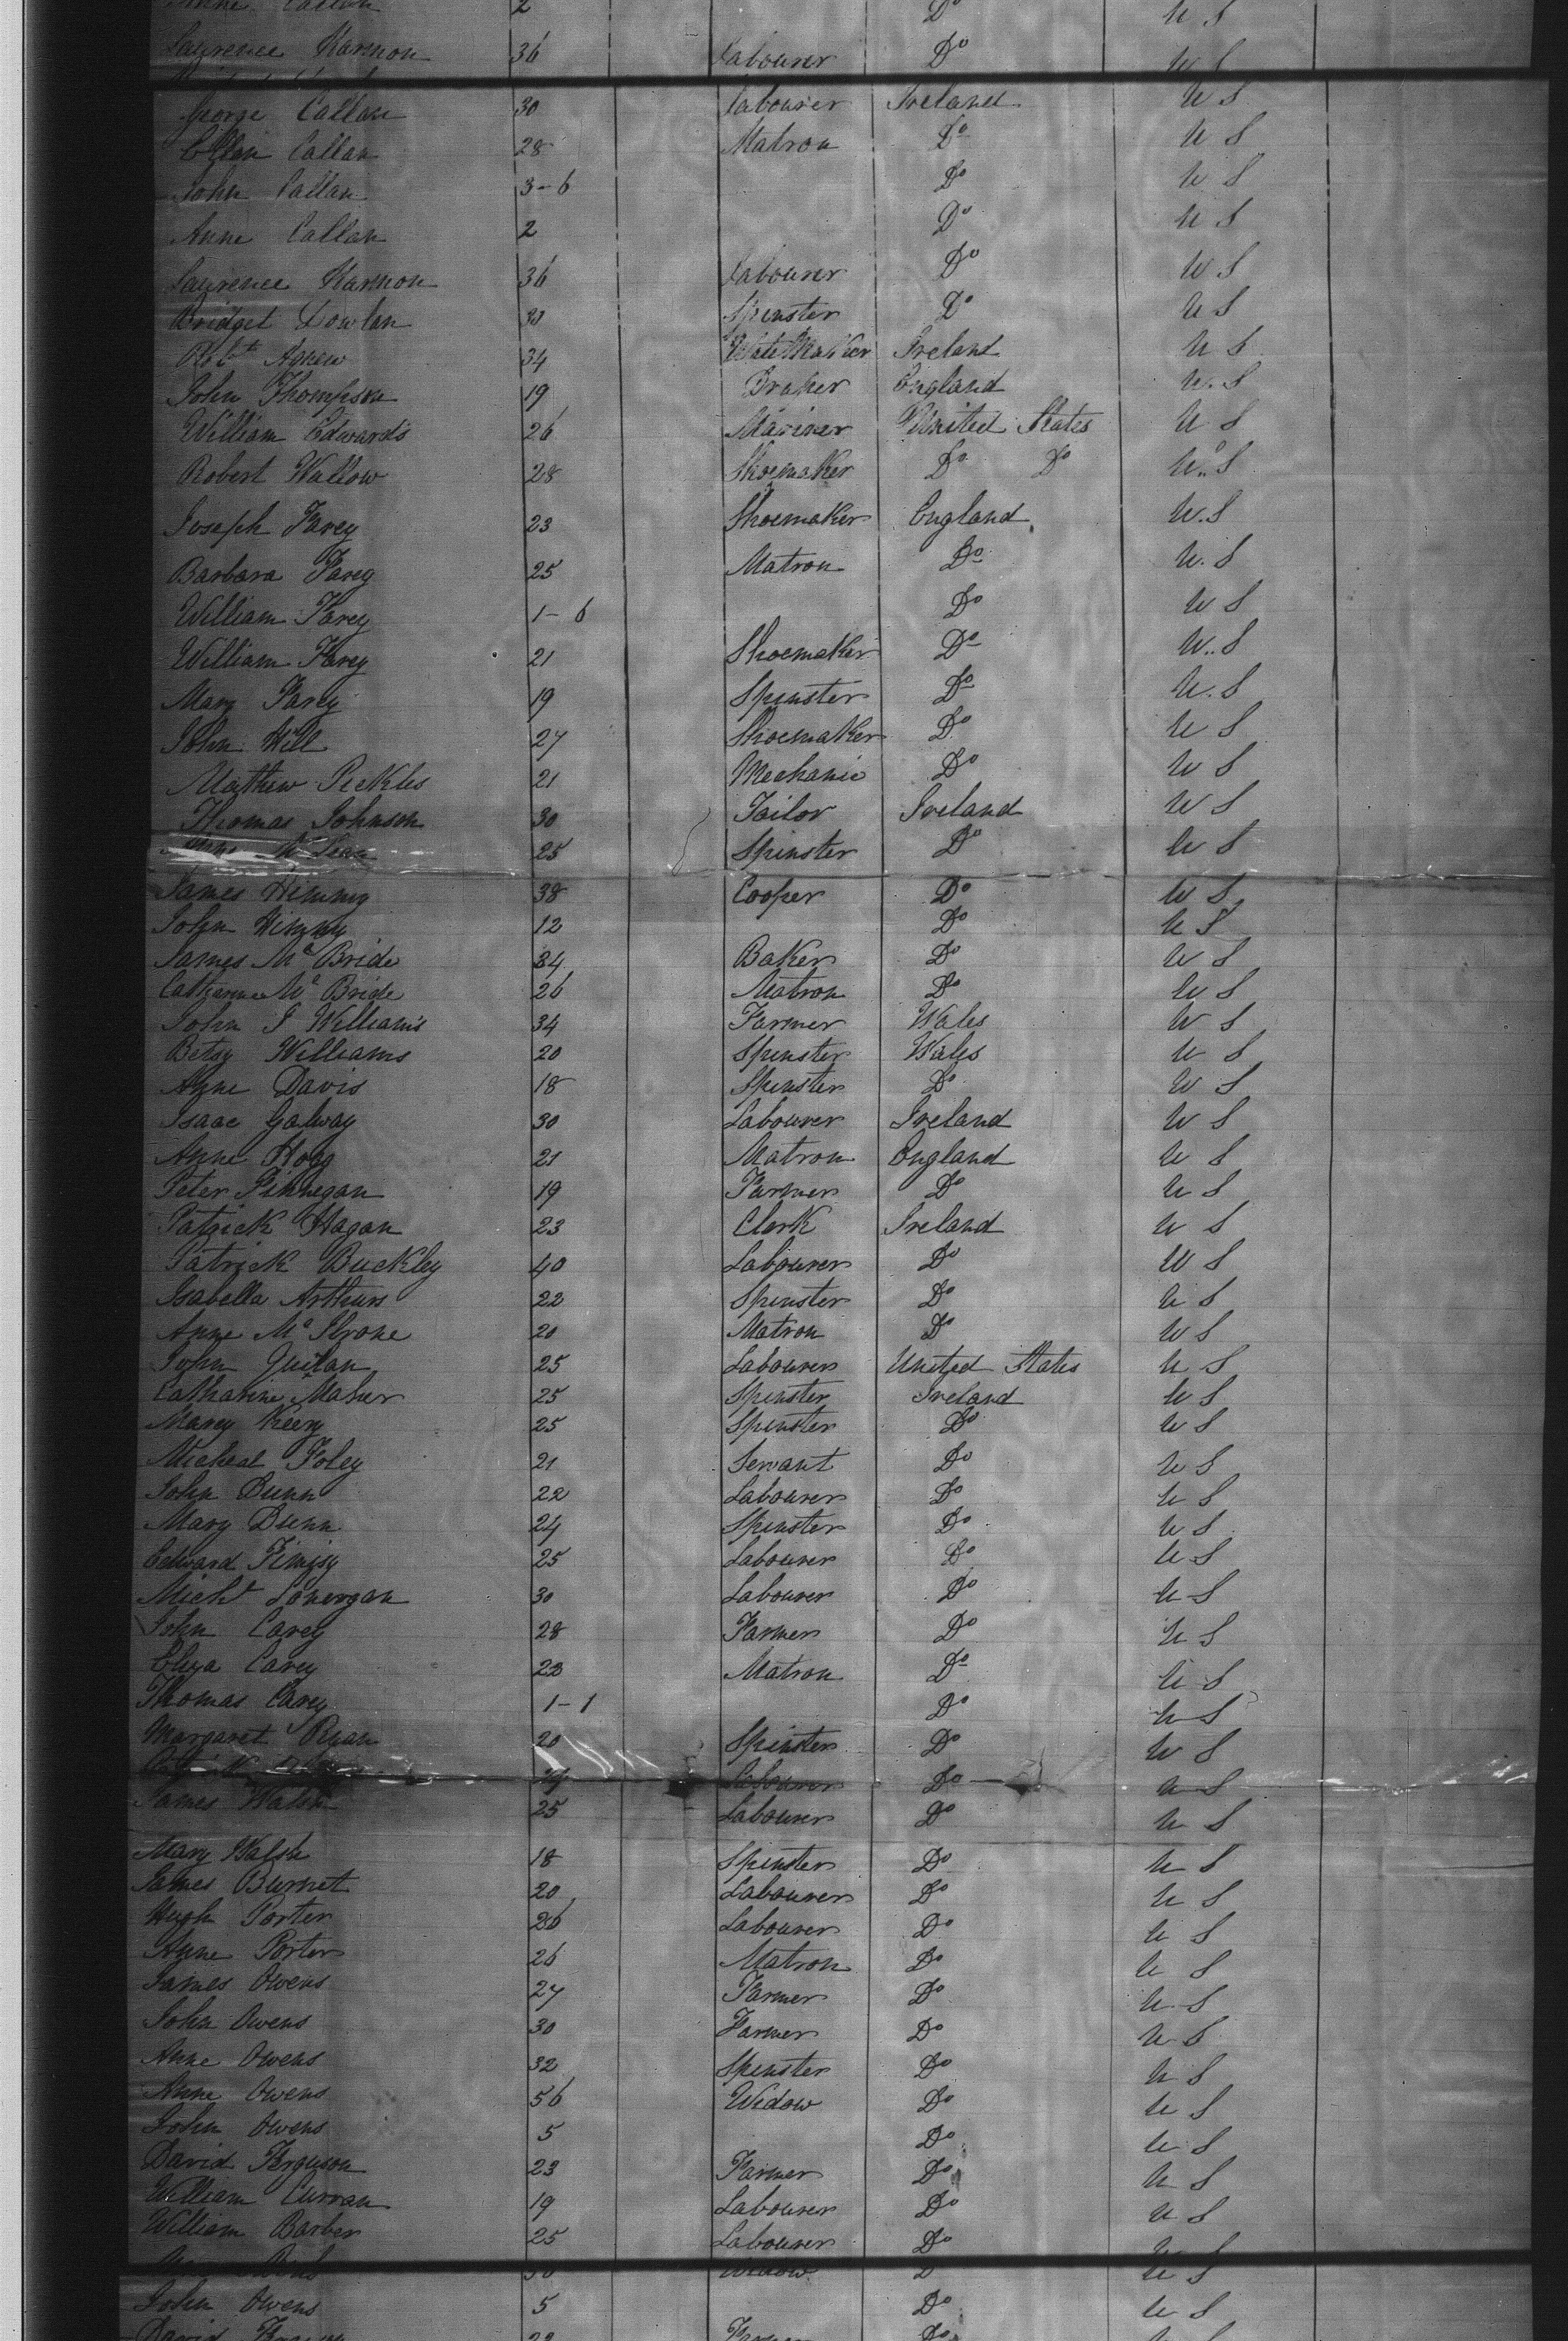 Anne Callan 2 Do U S
Laurence Harmon 36 Labourer Do U S
George Callan 30 Labourer Ireland U S
Callan 28 Matron Do U S
John Callan 3-6 Do U S
Anne Callan 2 Do U S
Laurence Harmon 36 Labourer Do U S
Bridget Dowlan 33 Spinster Do U S
Robt Agnew 34 Ireland U S
John Thompson 19 Draper England U.S
William Edwards 26 Mariner United States U S
Robert Wallow 28 Shoemaker Do Do U.S
Joseph Farey 23 Shoemaker England U.S
Barbara Farey 25 Matron Do U.S
William Farey 1-6 Do U S
William Farey 21 Shoemaker Do U..S
Mary Farey 19 Spinster Do U.S
John Will 27 Shoemaker Do U S
Mathew Peckles 21 Mechanic Do U S
Thomas Johnson 30 Tailor Ireland U S
Mc Lean 25 Spinster Do U S
James 38 Cooper Do U S
John 12 Do U S
James Mc Bride 34 Baker Do U S
Catharine Mc Bride 26 Matron Do U S
John J Williams 34 Farmer Wales U S
Betsy Williams 20 Spinster Wales U S
Anne Davis 18 Spinster Do U S
Isaac Galway 30 Labourer Ireland U S
Anne Hogg 21 Matron England U S
Peter Finnegan 19 Farmer Do U S
Patrick Hagan 23 Clerk Ireland U S
Patrick Buckley 40 Labourer Do U S
Isabella Arthurs 22 Spinster Do U S
Anne Mc Ilrone 20 Matron Do U S
John Quilan 25 Labourer United States U S
Catharine Maher 25 Spinster Ireland U S
Marey Keery 25 Spinster Do U S
Micheal Foley 21 Servant Do U S
John Dunn 22 Labourer Do U S
Mary Dunn 24 Spinster Do U S
Edward 25 Labourer Do U S
Michl Lonergan 30 Labourer Do U S
John Carey 28 Farmer Do U S
Eliza Carey 23 Matron Do U S
Thomas Carey 1-1 Do U S
Margaret Ryan 20 Spinster Do U S
Labourer Do U S
James Walsh 25 Labourer Do U S
Mary Walsh 18 Spinster Do U S
James Burnet 20 Labourer Do U S
Hugh Porter 26 Labourer Do U S
Anne Porter 26 Matron Do U S
James Owens 27 Farmer Do U S
John Owens 30 Farmer Do U S
Anne Owens 32 Spinster Do U S
Anne Owens 56 Widow Do U S
John Owens 5 Do U S
David Ferguson 23 Farmer Do U S
William Curran 19 Labourer Do U S
William Barber 25 Labourer Do U S
Widow U S
John Owens 5 Do U S
David 23 Do